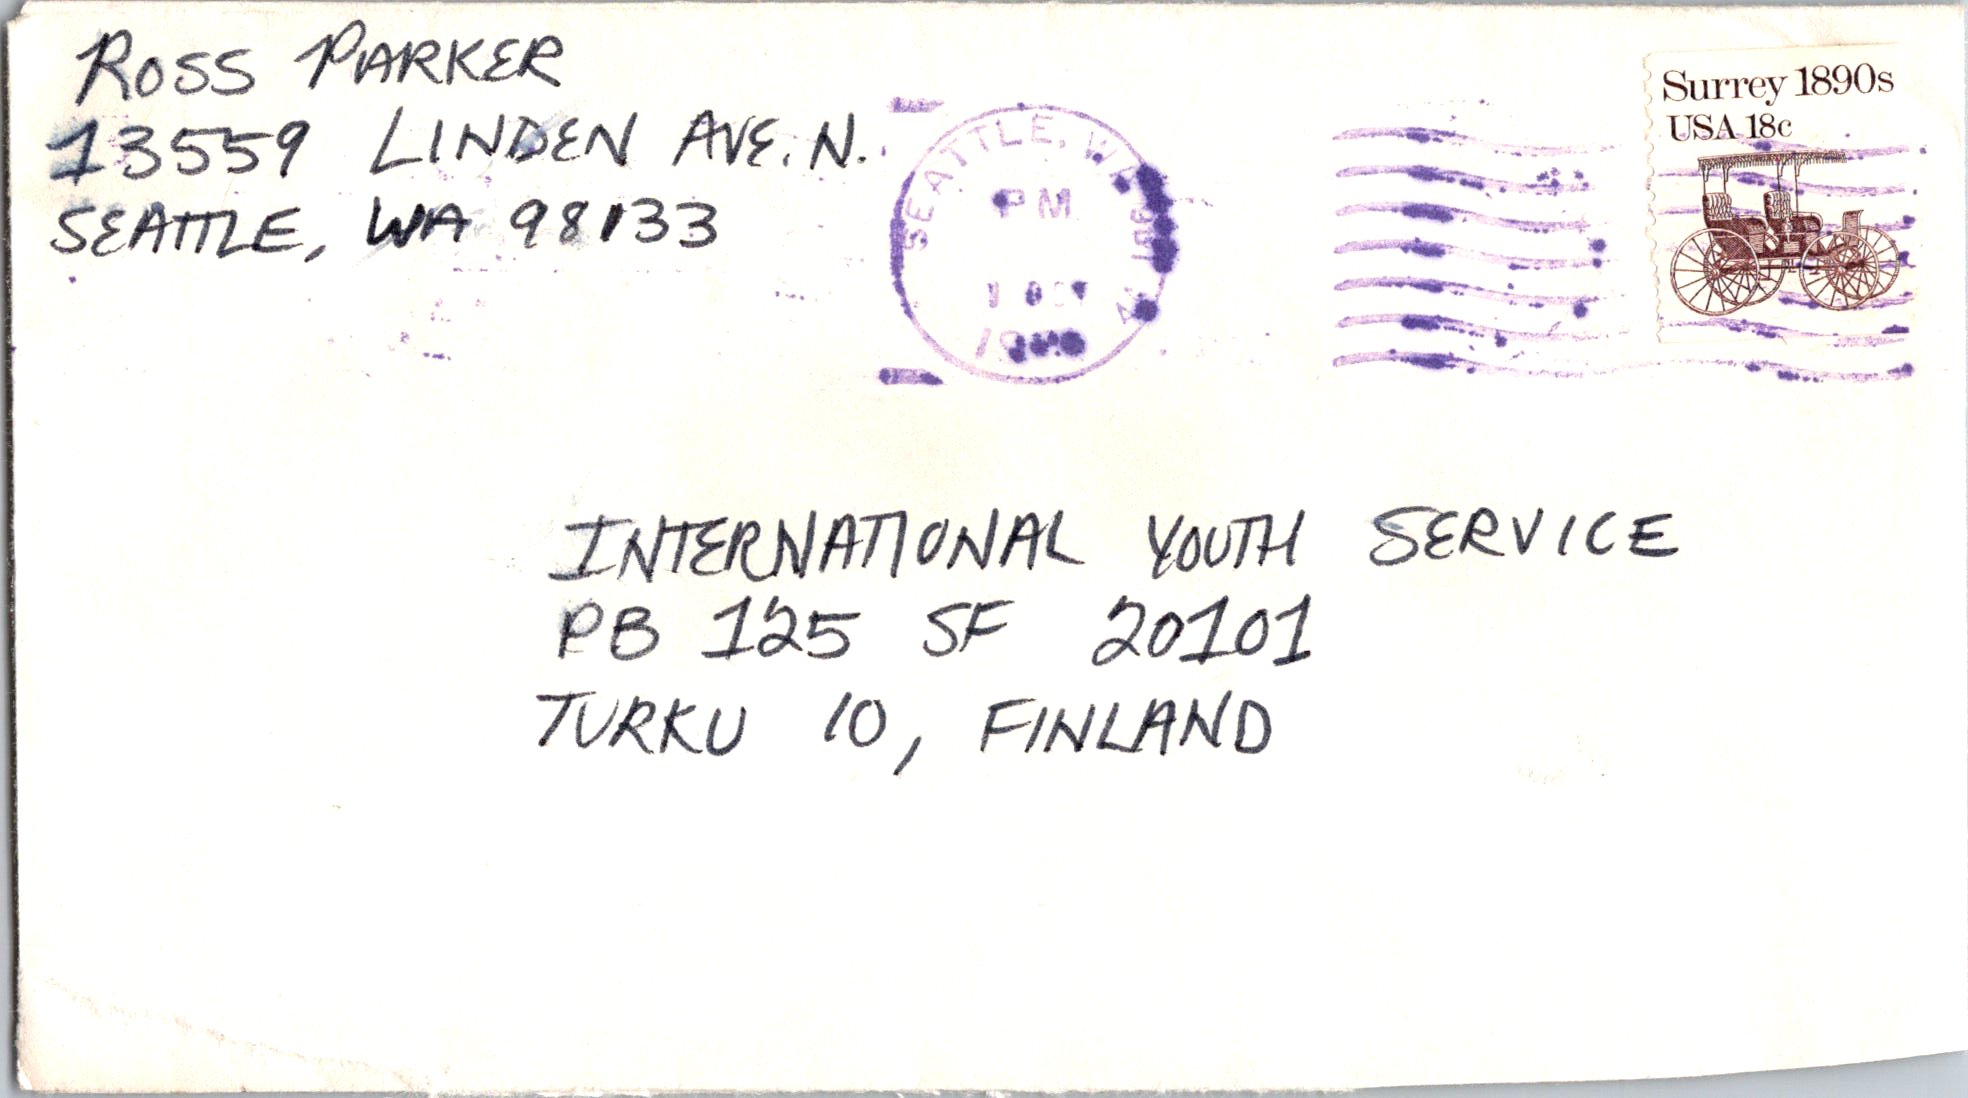 ROSS PARKER
13559 LINDEN AVE. N.
SEATTLE, WA 98133
SEATTLE, WA
PM
OCT
Surrey 1890s
USA 18c
INTERNATIONAL YOUTH SERVICE
PB 125 SF 20101
TURKU 10, FINLAND